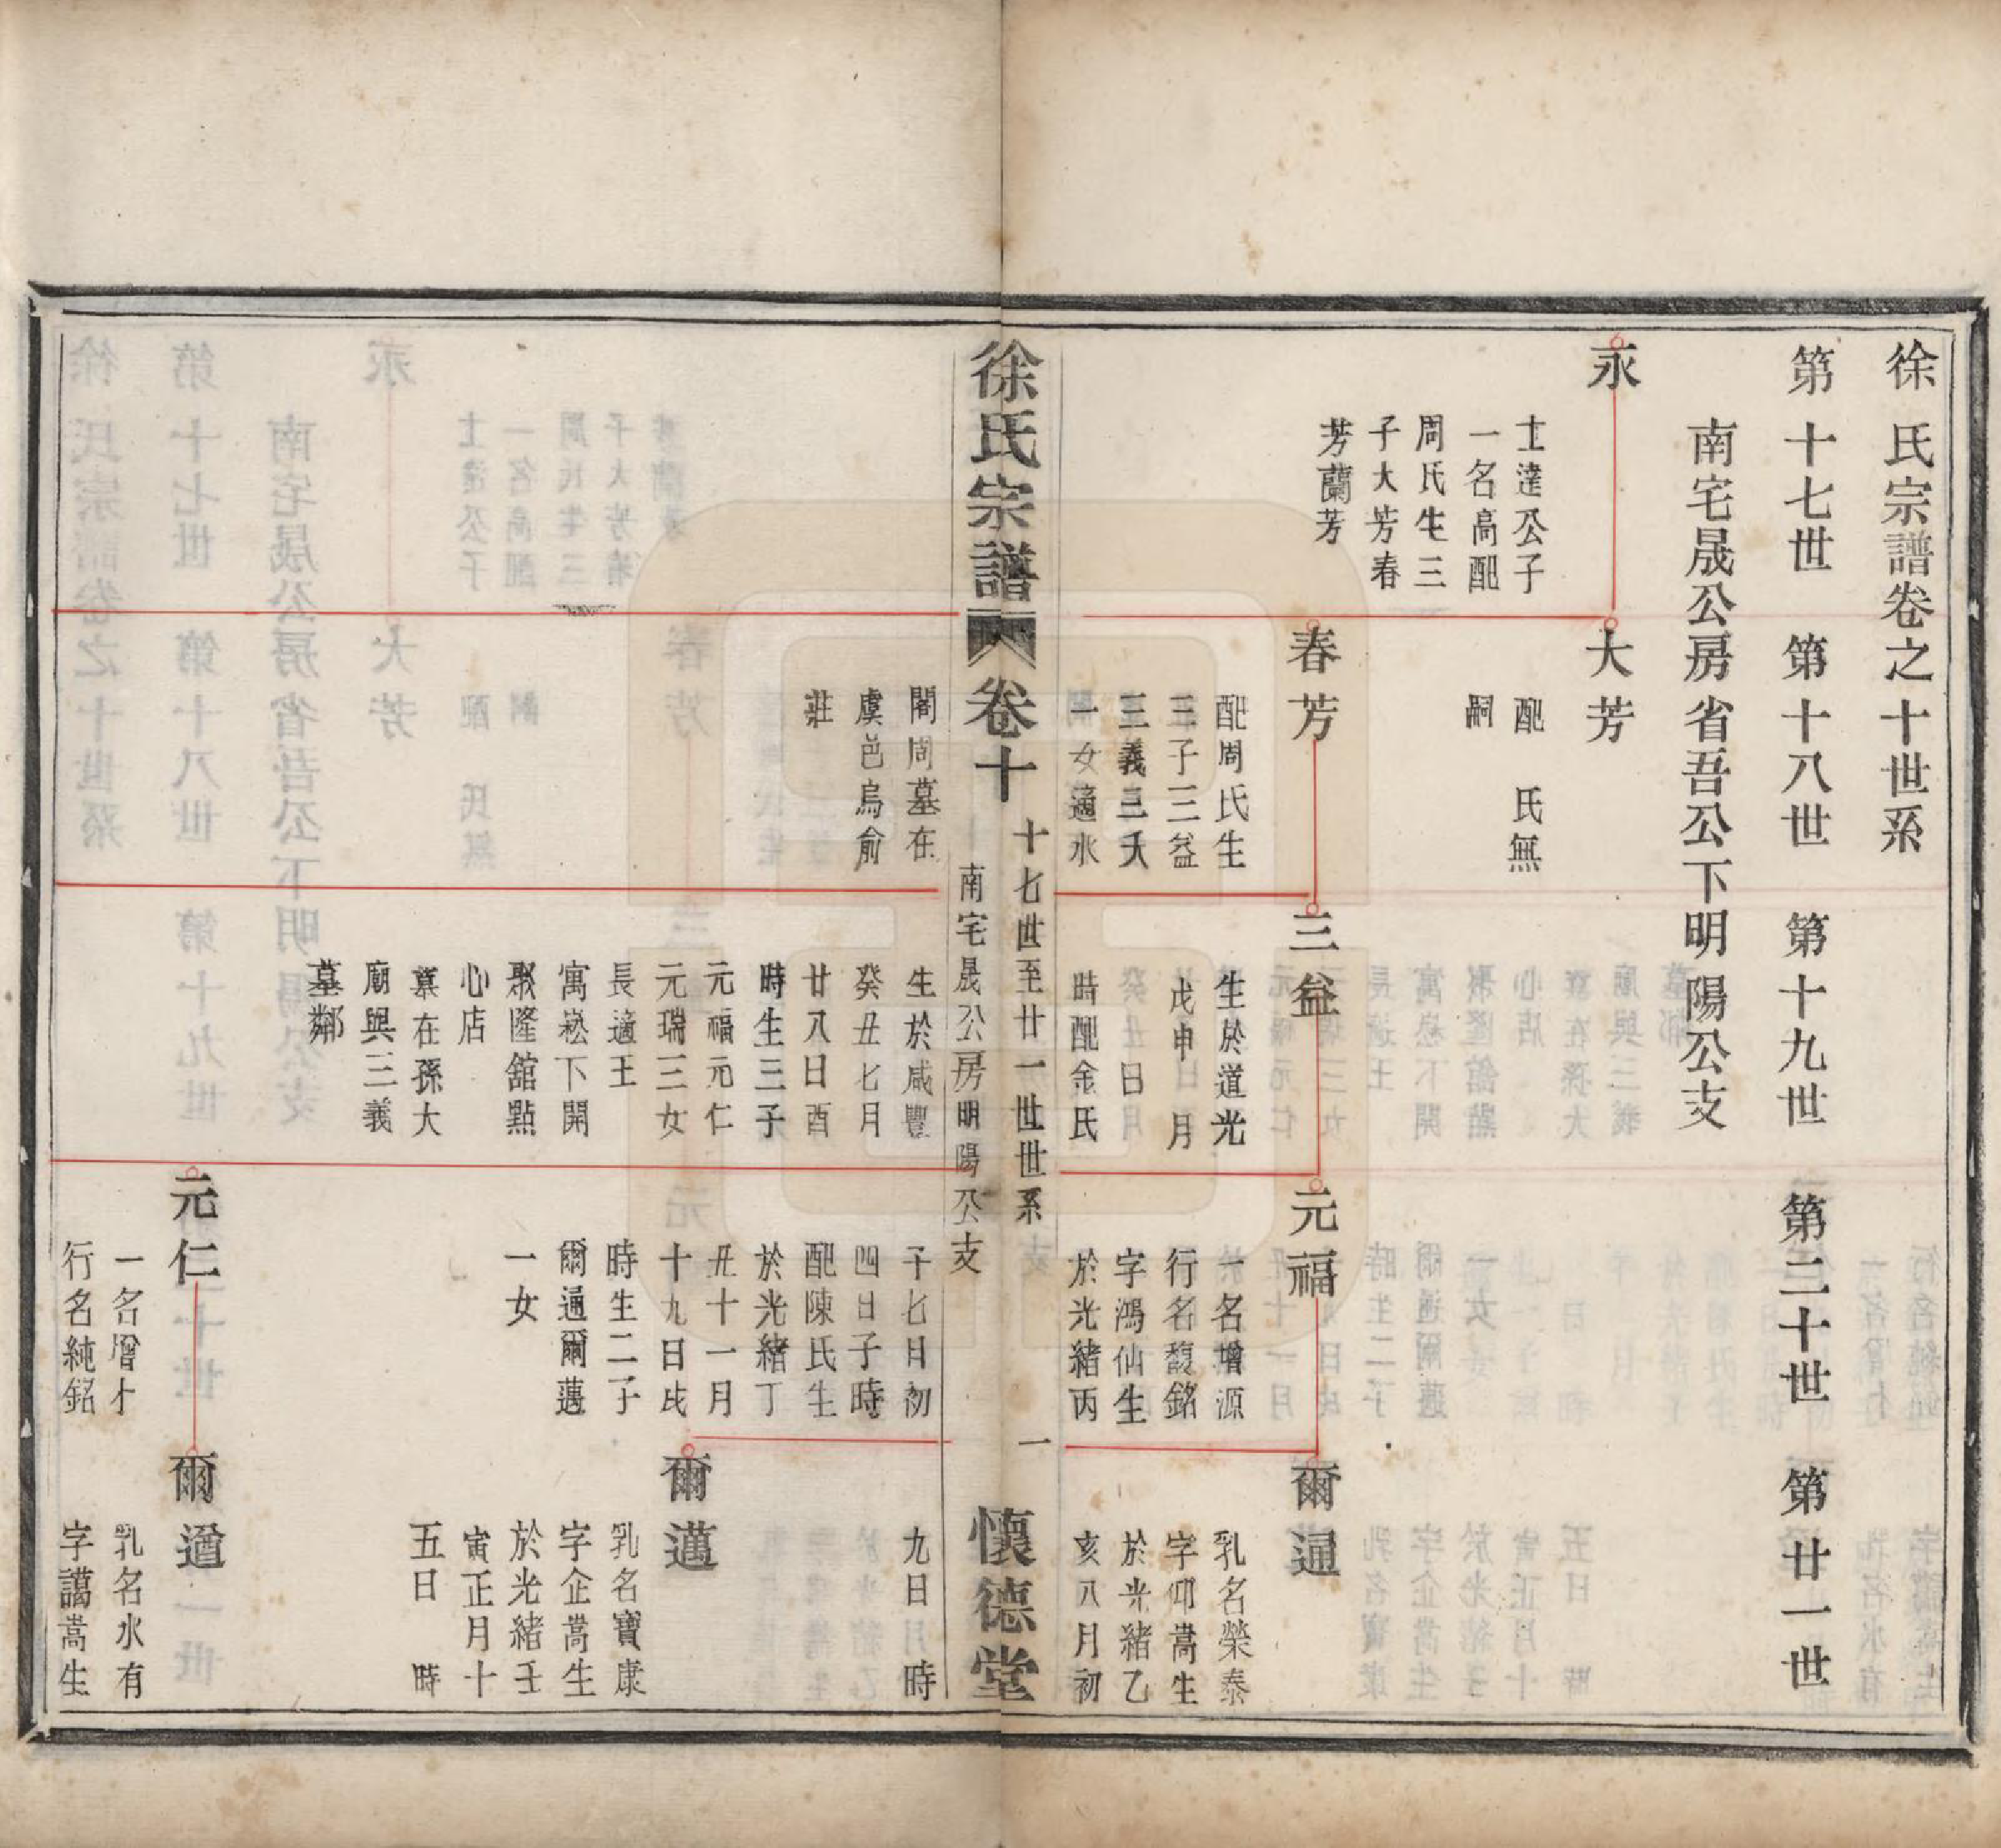 徐氏宗譜卷之十世系
第十七世 第十八世 第十九世 第二十世 第廿一世
南宅晟公房省吾公下明陽公支
永
士達公子
一名高配
周氏生三
子大芳春
芳蘭芳
大芳
配 氏無
嗣
春芳
配周氏生
三子三益
三義三天
一女適水
三益
生於道光
戊申 月
日
時配金氏
元福
一名增源
行名馥銘
字鴻仙生
於光緒丙
爾通
乳名榮泰
字仰嵩生
於光緒乙
亥八月初
徐氏宗譜 卷十 十七世至廿一世世系 南宅晟公房明陽公支 一 懷德堂
閣周墓在
虞邑烏俞
莊
生於咸豐
癸丑七月
廿八日酉
時生三子
元福元仁
元瑞三女
長適王
寓崧下開
聚隆舘點
心店
墓在孫大
廟與三義
墓鄰
子七日初
四日子時
配陳氏生
於光緒丁
丑十一月
十九日戌
時生二子
爾通爾邁
一女
九日 時
爾邁
乳名寶康
字企嵩生
於光緒壬
寅正月十
五日 時
元仁
一名增才
行名純銘
爾遒
乳名水有
字藹嵩生